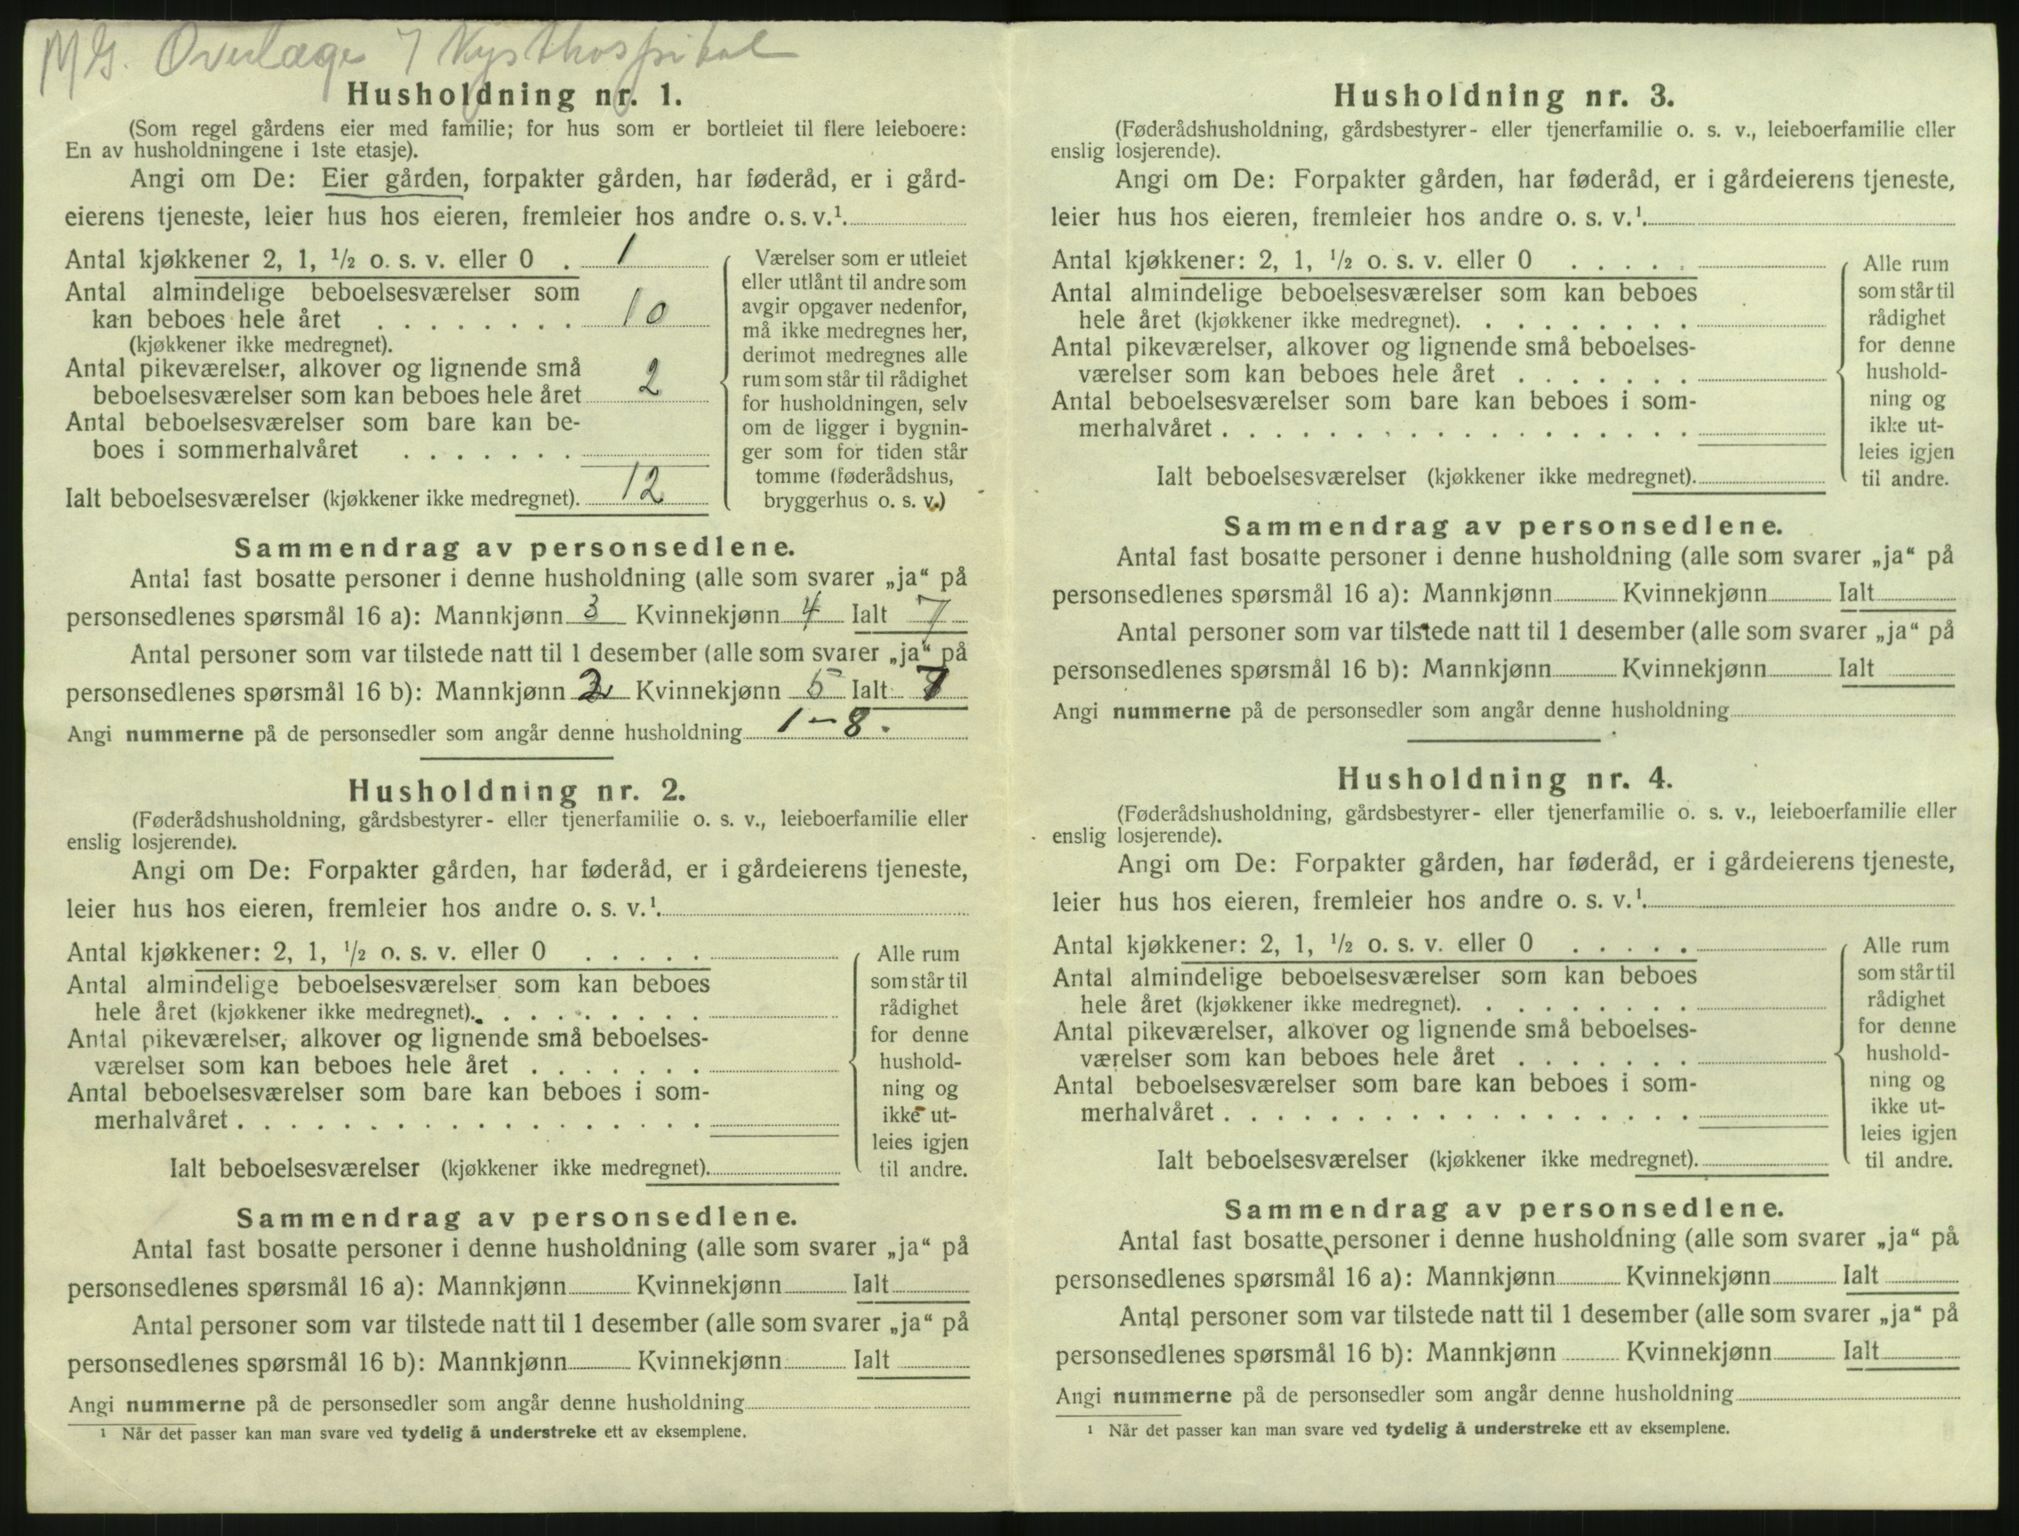 Overlæge Kysthospital
Husholdning nr. 1.
(Som regel gårdens eier med familie; for hus som er bortleiet til flere leieboere:
En av husholdningene i 1ste etasje).
Angi om De: Eier gården, forpakter gården, har føderåd, er i gård-
eierens tjeneste, leier hus hos eieren, fremleier hos andre o. s. v.¹.
Antal kjøkkener 2, 1, ½ o. s. v. eller 0 . 1
Antal almindelige beboelsesværelser som
kan beboes hele året . . . . . . . . 10
(kjøkkener ikke medregnet).
Antal pikeværelser, alkover og lignende små
beboelsesværelser som kan beboes hele året 2
Antal beboelsesværelser som bare kan be-
boes i sommerhalvåret . . . . . . .
Ialt beboelsesværelser (kjøkkener ikke medregnet). 12
Værelser som er utleiet
eller utlånt til andre som
avgir opgaver nedenfor,
må ikke medregnes her,
derimot medregnes alle
rum som står til rådighet
for husholdningen, selv
om de ligger i bygnin-
ger som for tiden står
tomme (føderådshus,
bryggerhus o. s. v.)
Sammendrag av personsedlene.
Antal fast bosatte personer i denne husholdning (alle som svarer „ja“ på
personsedlenes spørsmål 16 a): Mannkjønn 3 Kvinnekjønn 4 Ialt 7
Antal personer som var tilstede natt til 1 desember (alle som svarer „ja“ på
personsedlenes spørsmål 16 b): Mannkjønn 2 Kvinnekjønn 5 Ialt 7
Angi nummerne på de personsedler som angår denne husholdning 1-8.
Husholdning nr. 2.
(Føderådshusholdning, gårdsbestyrer- eller tjenerfamilie o. s. v., leieboerfamilie eller
enslig losjerende).
Angi om De: Forpakter gården, har føderåd, er i gårdeierens tjeneste,
leier hus hos eieren, fremleier hos andre o. s. v.¹.
Antal kjøkkener: 2, 1, ½ o. s. v. eller 0 . . . . .
Antal almindelige beboelsesværelser som kan beboes
hele året (kjøkkener ikke medregnet). . . . . . . . .
Antal pikeværelser, alkover og lignende små beboelses-
værelser som kan beboes hele året . . . . . . .
Antal beboelsesværelser som bare kan beboes i som-
merhalvåret . . . . . . . . . . . . . . . . . .
Ialt beboelsesværelser (kjøkkener ikke medregnet).
Alle rum
som står til
rådighet
for denne
hushold-
ning og
ikke ut-
leies igjen
til andre.
Sammendrag av personsedlene.
Antal fast bosatte personer i denne husholdning (alle som svarer „ja“ på
personsedlenes spørsmål 16 a): Mannkjønn Kvinnekjønn Ialt
Antal personer som var tilstede natt til 1 desember (alle som svarer „ja“ på
personsedlenes spørsmål 16 b): Mannkjønn Kvinnekjønn Ialt
Angi nummerne på de personsedler som angår denne husholdning
¹ Når det passer kan man svare ved tydelig å understreke ett av eksemplene.
Husholdning nr. 3.
(Føderådshusholdning, gårdsbestyrer- eller tjenerfamilie o. s. v., leieboerfamilie eller
enslig losjerende).
Angi om De: Forpakter gården, har føderåd, er i gårdeierens tjeneste,
leier hus hos eieren, fremleier hos andre o. s. v.¹.
Antal kjøkkener: 2, 1, ½ o. s. v. eller 0 . . . . .
Antal almindelige beboelsesværelser som kan beboes
hele året (kjøkkener ikke medregnet). . . . . . . . .
Antal pikeværelser, alkover og lignende små beboelses-
værelser som kan beboes hele året . . . . . . .
Antal beboelsesværelser som bare kan beboes i som-
merhalvåret . . . . . . . . . . . . . . . . . .
Ialt beboelsesværelser (kjøkkener ikke medregnet).
Alle rum
som står til
rådighet
for denne
hushold-
ning og
ikke ut-
leies igjen
til andre.
Sammendrag av personsedlene.
Antal fast bosatte personer i denne husholdning (alle som svarer „ja“ på
personsedlenes spørsmål 16 a): Mannkjønn Kvinnekjønn Ialt
Antal personer som var tilstede natt til 1 desember (alle som svarer „ja“ på
personsedlenes spørsmål 16 b): Mannkjønn Kvinnekjønn Ialt
Angi nummerne på de personsedler som angår denne husholdning
Husholdning nr. 4.
(Føderådshusholdning, gårdsbestyrer- eller tjenerfamilie o. s. v., leieboerfamilie eller
enslig losjerende).
Angi om De: Forpakter gården, har føderåd, er i gårdeierens tjeneste,
leier hus hos eieren, fremleier hos andre o. s. v.¹.
Antal kjøkkener: 2, 1, ½ o. s. v. eller 0 . . . . .
Antal almindelige beboelsesværelser som kan beboes
hele året (kjøkkener ikke medregnet). . . . . . . . .
Antal pikeværelser, alkover og lignende små beboelses-
værelser som kan beboes hele året . . . . . . .
Antal beboelsesværelser som bare kan beboes i som-
merhalvåret . . . . . . . . . . . . . . . . . .
Ialt beboelsesværelser (kjøkkener ikke medregnet).
Alle rum
som står til
rådighet
for denne
hushold-
ning og
ikke ut-
leies igjen
til andre.
Sammendrag av personsedlene.
Antal fast bosatte personer i denne husholdning (alle som svarer „ja“ på
personsedlenes spørsmål 16 a): Mannkjønn Kvinnekjønn Ialt
Antal personer som var tilstede natt til 1 desember (alle som svarer „ja“ på
personsedlenes spørsmål 16 b): Mannkjønn Kvinnekjønn Ialt
Angi nummerne på de personsedler som angår denne husholdning
¹ Når det passer kan man svare ved tydelig å understreke ett av eksemplene.